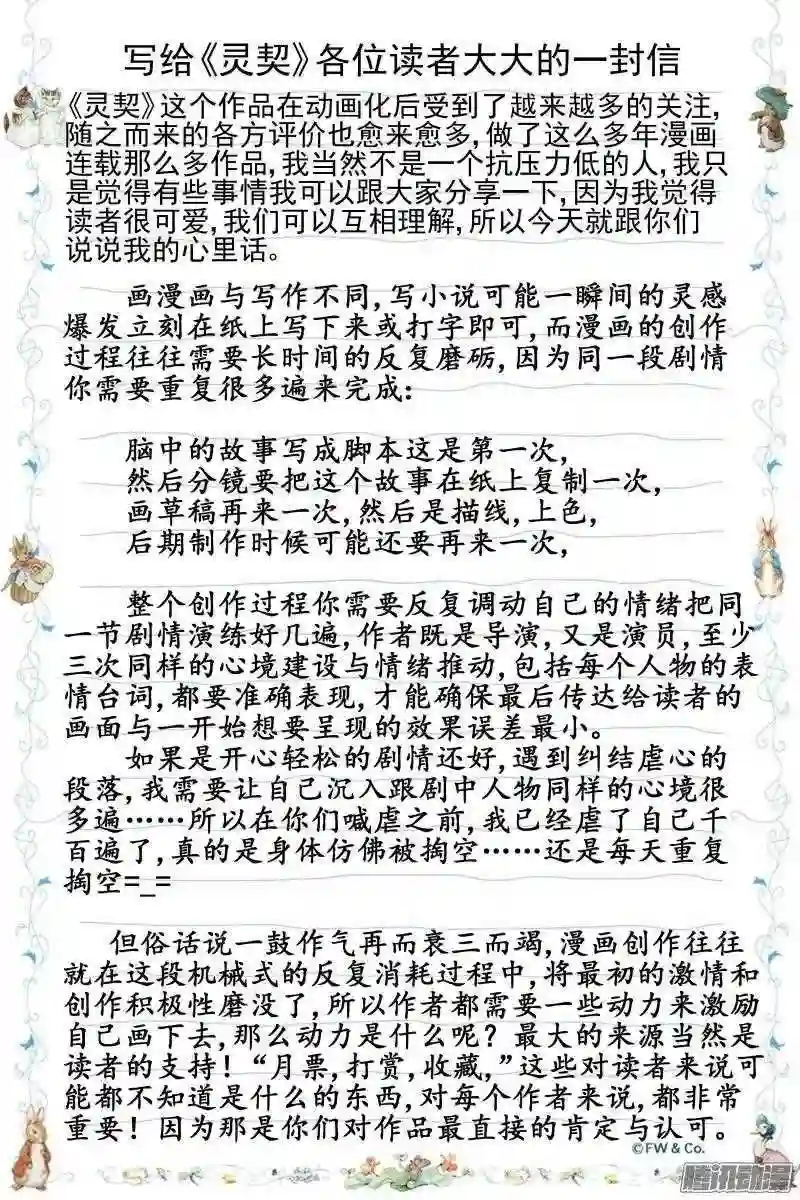 写给《灵契》各位读者大大的一封信
《灵契》这个作品在动画化后受到了越来越多的关注,
随之而来的各方评价也愈来愈多,做了这么多年漫画
连载那么多作品,我当然不是一个抗压力低的人,我只
是觉得有些事情我可以跟大家分享一下,因为我觉得
读者很可爱,我们可以互相理解,所以今天就跟你们
说说我的心里话。
画漫画与写作不同,写小说可能一瞬间的灵感
爆发立刻在纸上写下来或打字即可,而漫画的创作
过程往往需要长时间的反复磨砺,因为同一段剧情
你需要重复很多遍来完成:
脑中的故事写成脚本这是第一次,
然后分镜要把这个故事在纸上复制一次,
画草稿再来一次,然后是描线,上色,
后期制作时候可能还要再来一次,
整个创作过程你需要反复调动自己的情绪把同
一节剧情演练好几遍,作者既是导演,又是演员,至少
三次同样的心境建设与情绪推动,包括每个人物的表
情台词,都要准确表现,才能确保最后传达给读者的
画面与一开始想要呈现的效果误差最小。
如果是开心轻松的剧情还好,遇到纠结虐心的
段落,我需要让自己沉入跟剧中人物同样的心境很
多遍……所以在你们喊虐之前,我已经虐了自己千
百遍了,真的是身体仿佛被掏空……还是每天重复
掏空=_=
但俗话说一鼓作气再而衰三而竭,漫画创作往往
就在这段机械式的反复消耗过程中,将最初的激情和
创作积极性磨没了,所以作者都需要一些动力来激励
自己画下去,那么动力是什么呢？最大的来源当然是
读者的支持！“月票,打赏,收藏,”这些对读者来说可
能都不知道是什么的东西,对每个作者来说,都非常
重要！因为那是你们对作品最直接的肯定与认可。
©FW & Co.
腾讯动漫